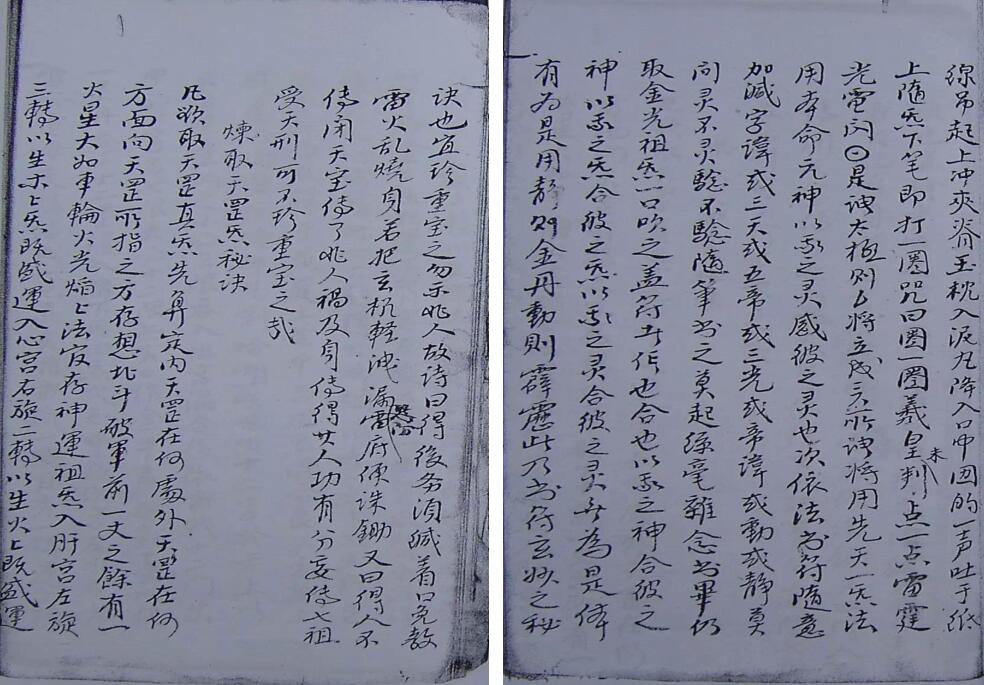 線吊起上冲夾脊玉枕入泥丸降入口中囡的一声吐于纸
上隨炁下笔即打一圈咒曰圈一圈羲皇未判点一点雷霆
光電閃⊙是訣太極剖与將立成云所謂將用先天一炁法
用本命元神以我之灵感彼之灵也次依法書符隨意
加减字諱或三天或五帝或三光或帝諱或動或静莫
问灵不灵騐不騐隨筆書之莫起絲毫雜念書畢仍
取金光祖炁一口吹之盖符者信也合也以我之神合彼之
神以我之炁合彼之炁以我之灵合彼之灵无為是体
有為是用静则金丹動則霹靂此乃書符玄妙之秘
诀也宜珍重宝之勿示非人故诗曰得後务須緘着口免教
雷火乱燒身若把玄机軽洩漏雷府便誅鋤又曰得人不
傳闭天宝傳了非人禍及身傳得其人功有分妄傳七祖
受天刑可不珍重宝之哉
煉取天罡炁秘诀
凡欲取天罡真炁先算定内天罡在何處外天罡在何
方面向天罡所指之方存想北斗破軍前一丈之餘有一
火星大如車輪火光焰上法官存神運祖炁入肝宫左旋
三轉以生木上炁既盛運入心宫右旋二轉以生火上既盛運